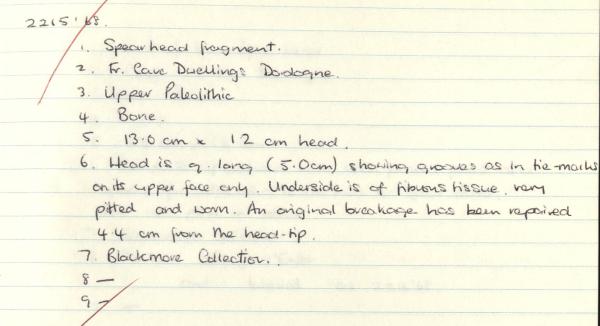 2215'68.
1. Spearhead fragment.
2. Fr. Cave Dwellings Dordogne.
3. Upper Paleolithic
4. Bone.
5. 13.0 cm x 1.2 cm head.
6. Head is q. long (5.0cm) showing grooves as in tie-marks
on its upper face only. Underside is of fibrous tissue, very
pitted and worn. An original breakage has been repaired
4.4 cm from the head-tip.
7. Blackmore Collection.
8 —
9 —